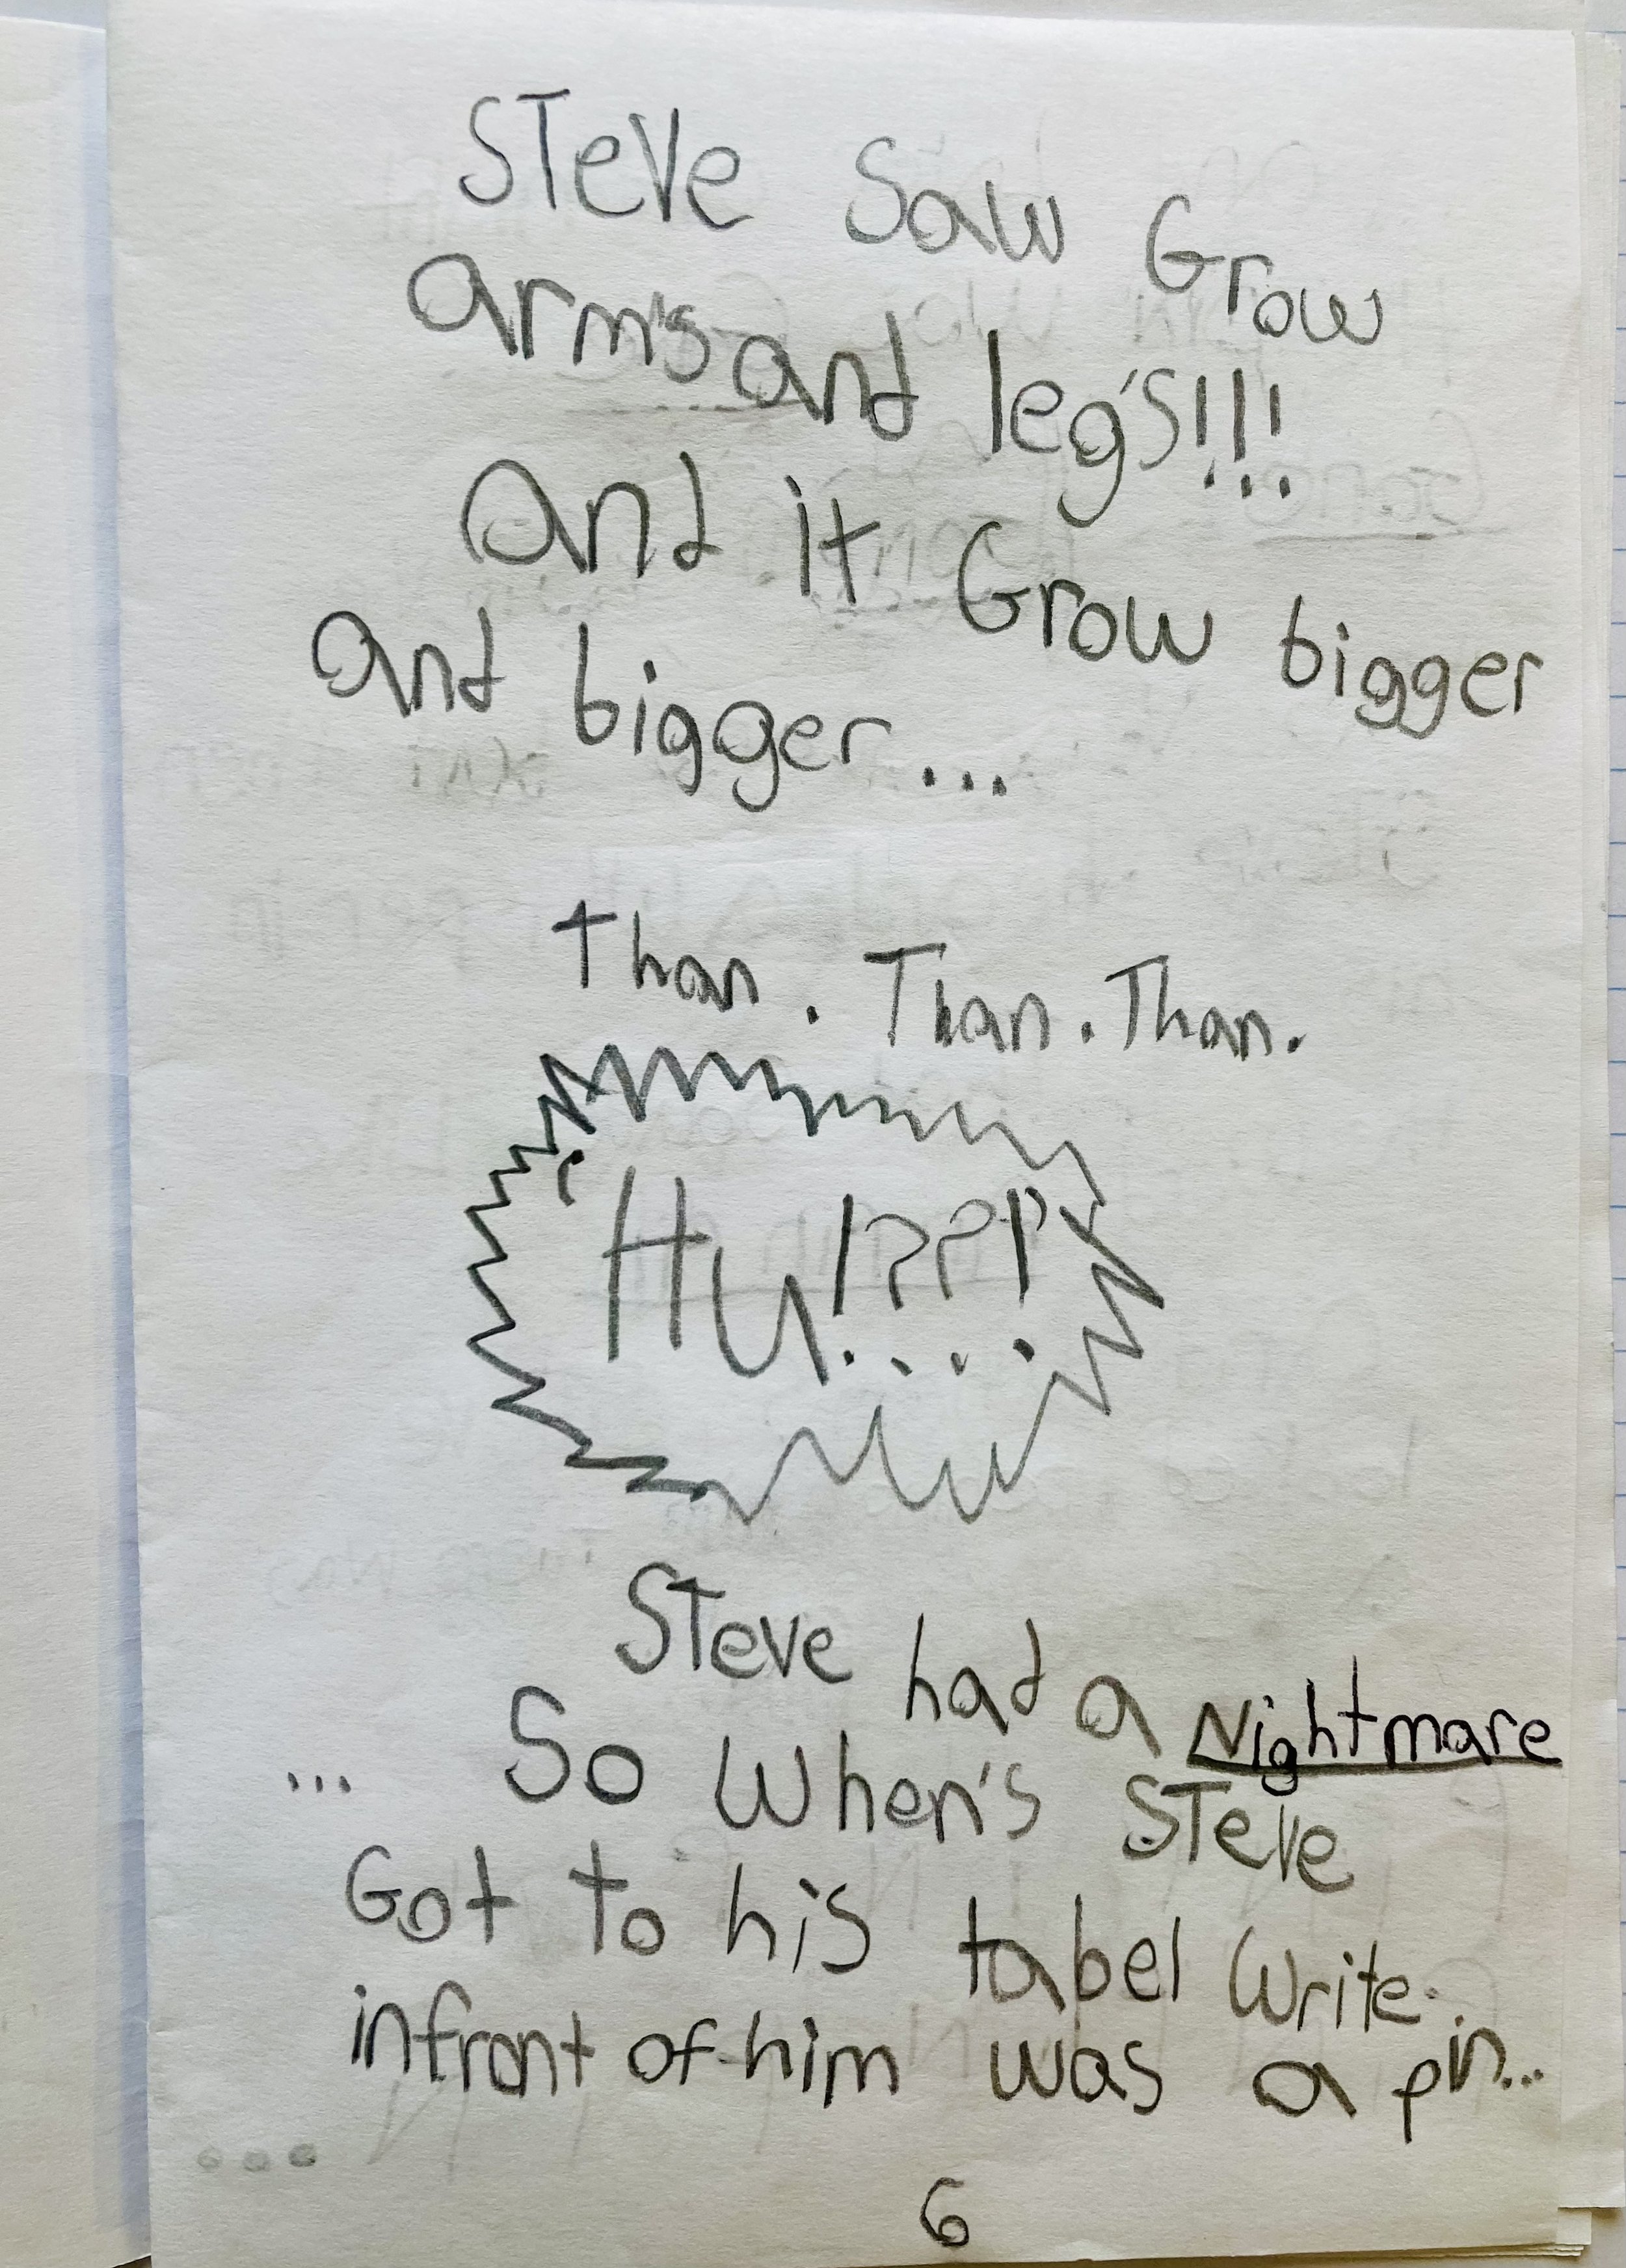 STeVe Saw Grow
arm's and leg's!!!
and it Grow bigger
and bigger...
Than. Than. Than.
Hu!???!
STeve had a Nightmare
... So When's STeve
Got to his tabel Write
infront of him was a pin...
...
6